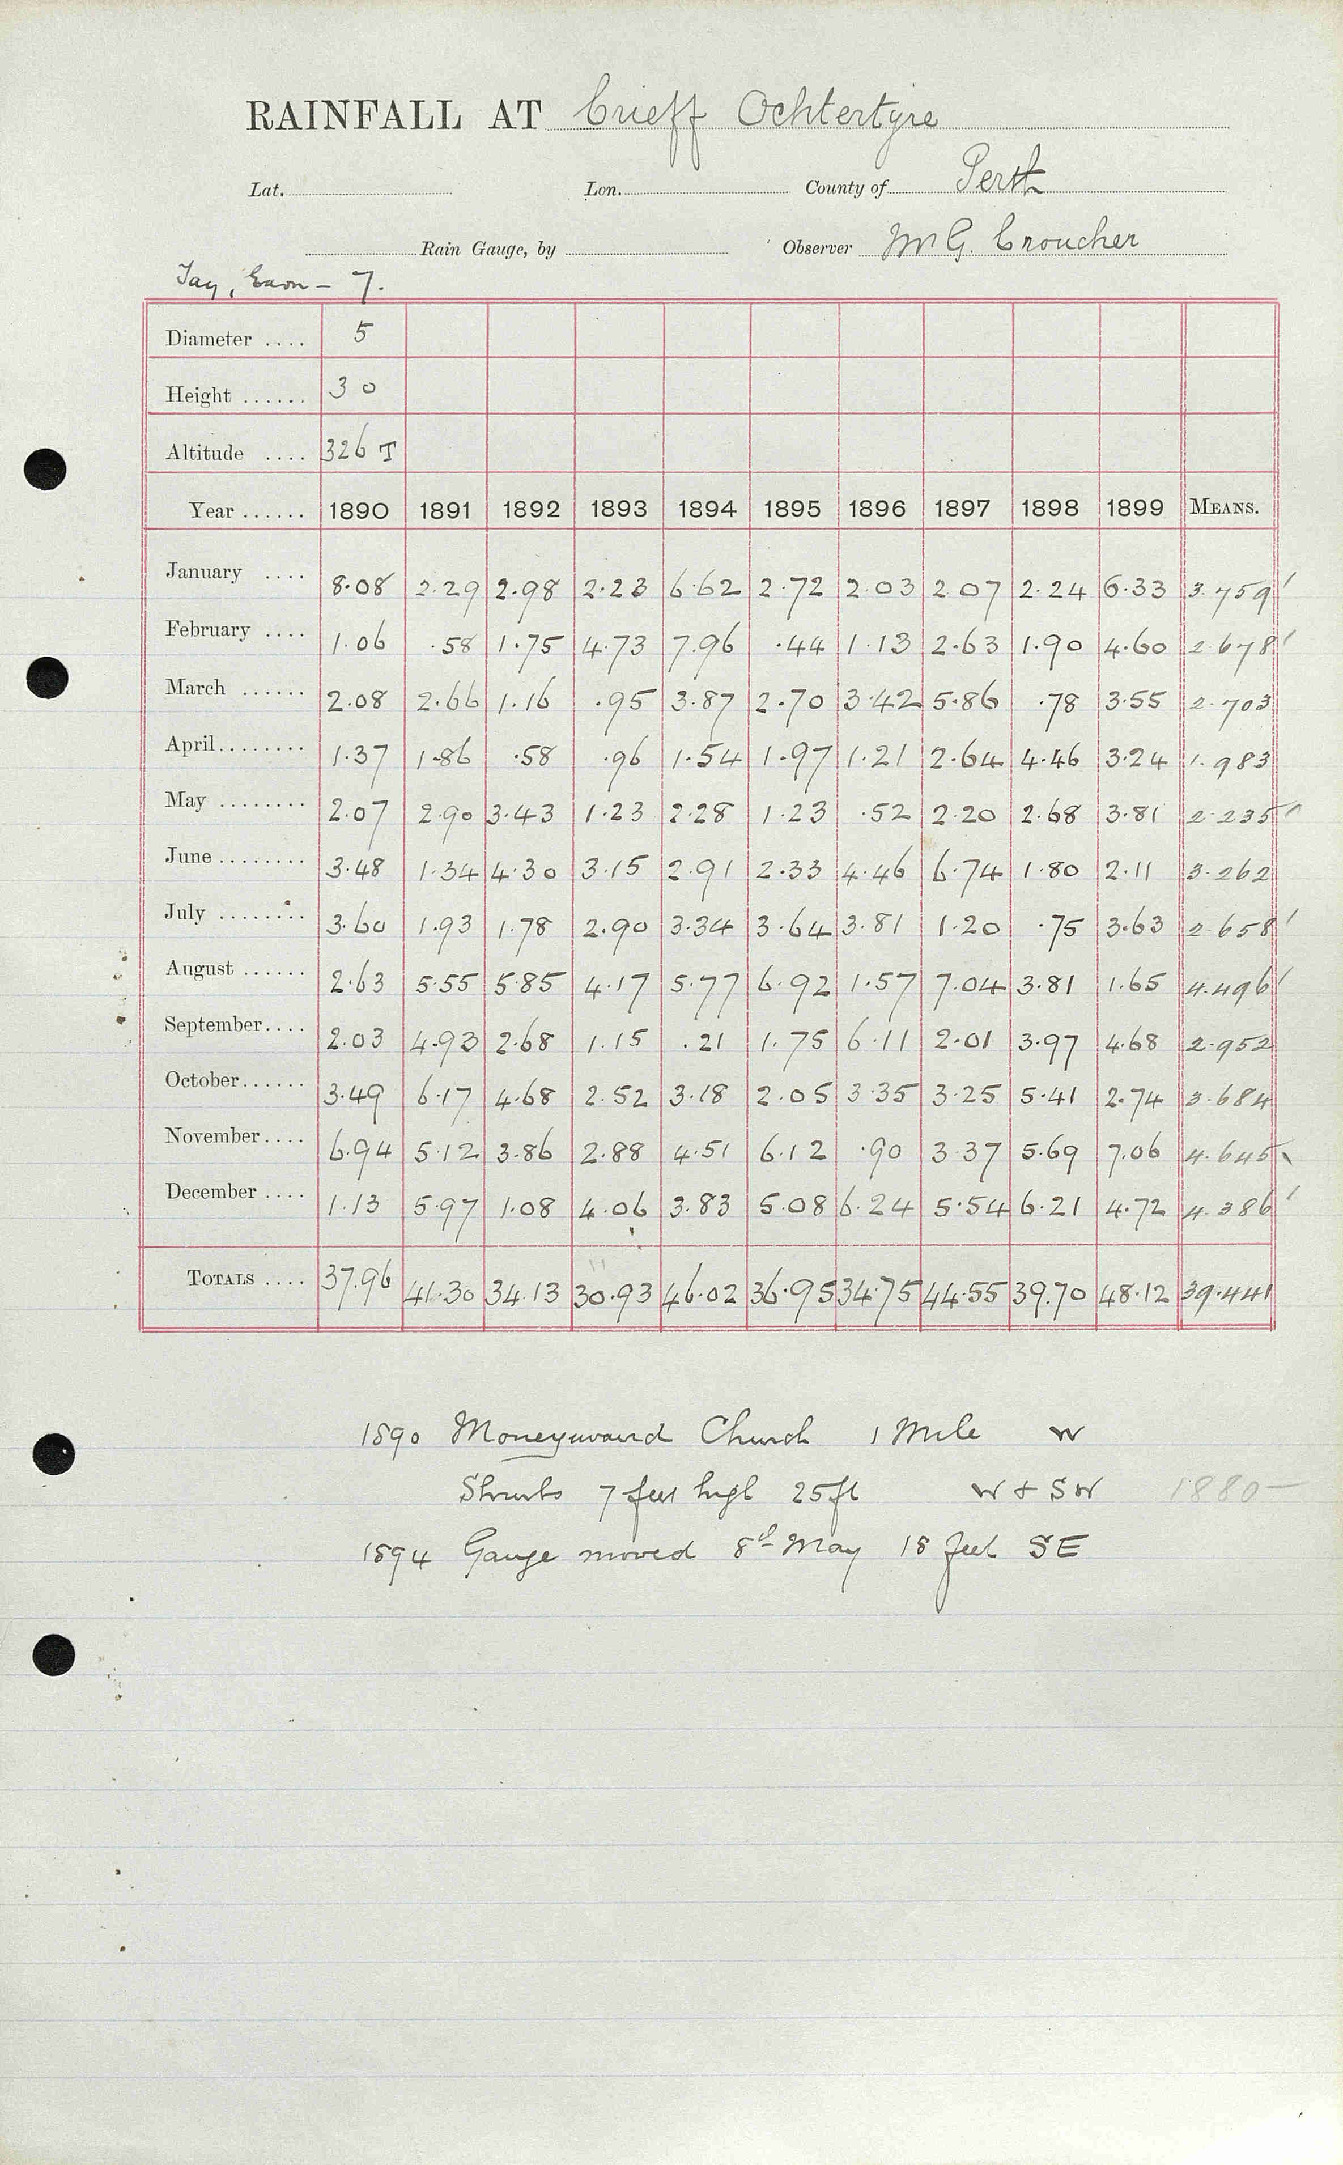 RAINFALL AT Crieff Ochtertyre
Lat. Lon. County of Perth
Rain Gauge, by Observer Mr G. Croucher
Tay, Earn - 7.
Diameter .... 5
Height ...... 30
Altitude .... 326 T
Year ...... 1890 1891 1892 1893 1894 1895 1896 1897 1898 1899 MEANS.
January .... 8.08 2.29 2.98 2.23 6.62 2.72 2.03 2.07 2.24 6.33 3.759
February .... 1.06 .58 1.75 4.73 7.96 .44 1.13 2.63 1.90 4.60 2.678
March ...... 2.08 2.66 1.16 .95 3.87 2.70 3.42 5.86 .78 3.55 2.703
April........ 1.37 1.86 .58 .96 1.54 1.97 1.21 2.64 4.46 3.24 1.983
May ........ 2.07 2.90 3.43 1.23 2.28 1.23 .52 2.20 2.68 3.81 2.235
June ........ 3.48 1.34 4.30 3.15 2.91 2.33 4.46 6.74 1.80 2.11 3.262
July ........ 3.60 1.93 1.78 2.90 3.34 3.64 3.81 1.20 .75 3.63 2.658
August ...... 2.63 5.55 5.85 4.17 5.77 6.92 1.57 7.04 3.81 1.65 4.496
September.... 2.03 4.93 2.68 1.15 .21 1.75 6.11 2.01 3.97 4.68 2.952
October...... 3.49 6.17 4.68 2.52 3.18 2.05 3.35 3.25 5.41 2.74 3.684
November.... 6.94 5.12 3.86 2.88 4.51 6.12 .90 3.37 5.69 7.06 4.645
December .... 1.13 5.97 1.08 4.06 3.83 5.08 6.24 5.54 6.21 4.72 4.386
TOTALS .... 37.96 41.30 34.13 30.93 46.02 36.95 34.75 44.55 39.70 48.12 39.441
1890 Moneyvaird Church 1 Mile W
Shrubs 7 feet high 25ft W + SW 1880-
1894 Gauge moved 8th May 18 feet SE